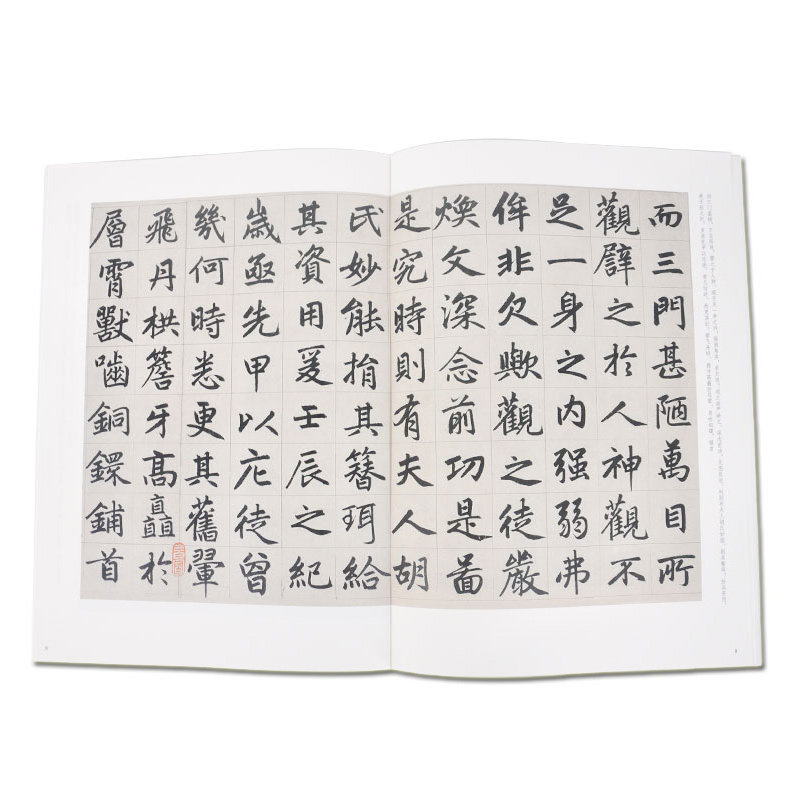 而三門甚陋萬目所
觀譬之於人神觀不
足一身之内强弱弗
侔非欠歟觀之徒嚴
煥文深念前功是啚
是究時則有夫人胡
氏妙能捐其簪珥給
其資用爰壬辰之紀
歲亟先甲以庀徒曾
幾何時悉更其舊翬
飛丹栱簷牙髙矗於
層霄獸嚙銅鐶鋪首